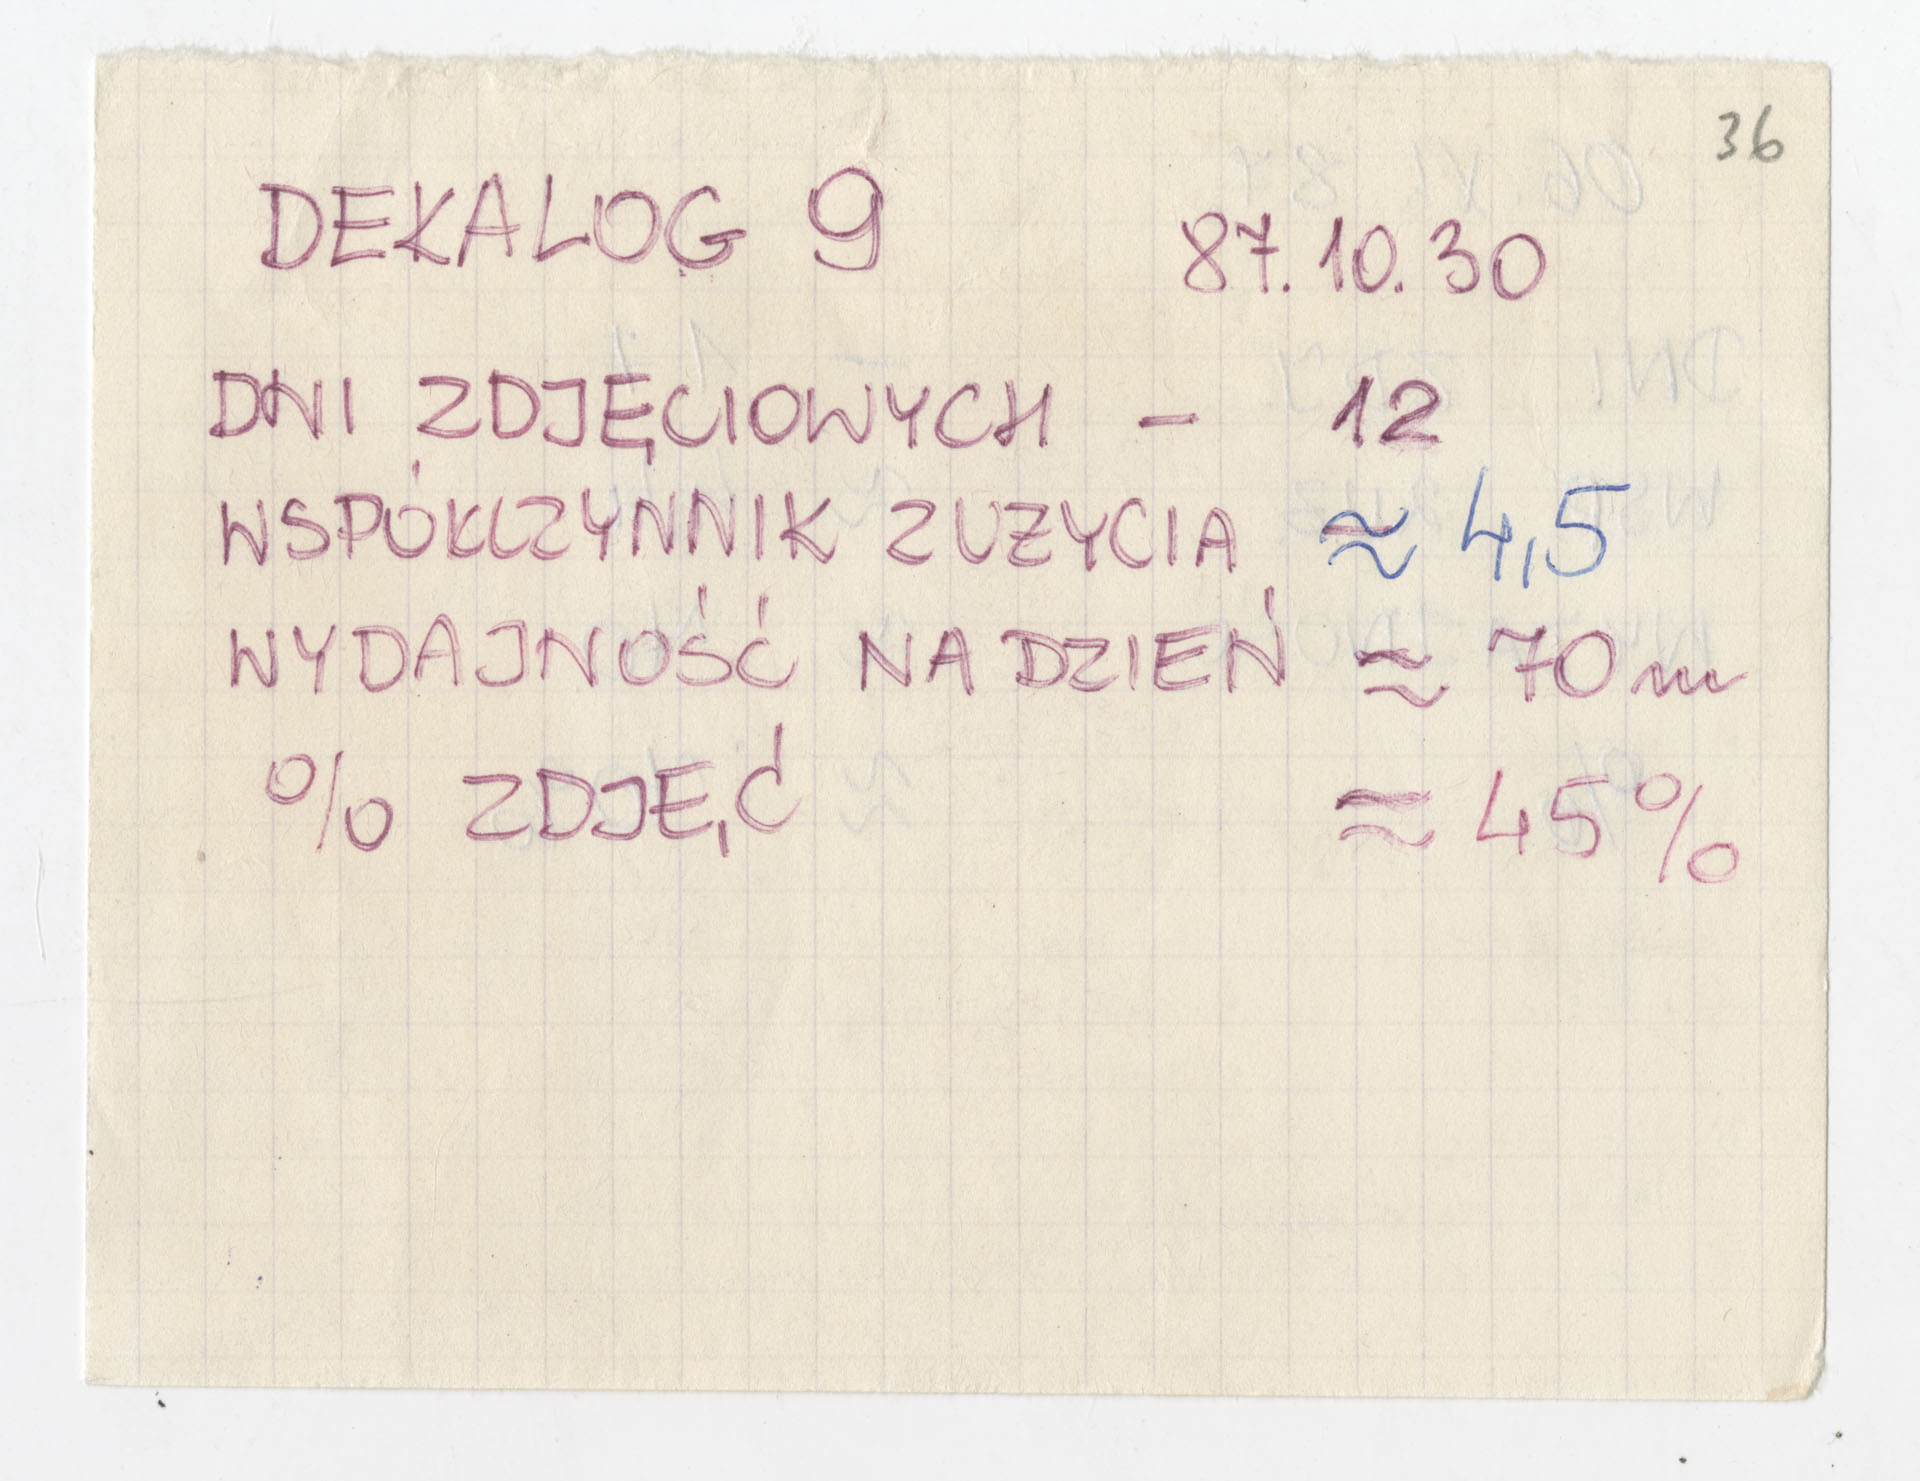 36
DEKALOG 9 87.10.30
DNI ZDJĘCIOWYCH - 12
WSPÓŁCZYNNIK ZUŻYCIA ≈ 4,5
WYDAJNOŚĆ NA DZIEŃ ≈ 70m
% ZDJĘĆ ≈ 45%